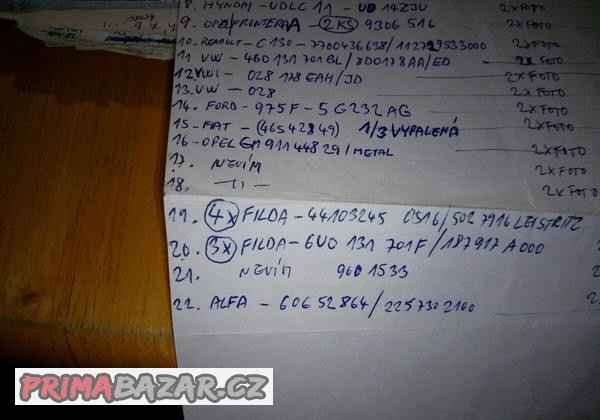 8. HYNDAI - UDLC 11 - UD 14ZJU 2x FOTO
9. OPEL/FRONTERA A - 2 KS 9306516 2x FOTO
10. RENAULT - C 130 - 7700436638/112729533000 2x FOTO
11 VW - 4B0 131 701 BL/8D0178AA/ED 2x FOTO
12 VW - 028 178 EAH/JD 2x FOTO
13. VW - 028 2x FOTO
14. FORD - 975F - 5G232 AG 2x FOTO
15 - FIAT - (46542849) 1/3 VYPALENÁ 2x FOTO
16 - OPEL GM 911 448 29/METAL 2x FOTO
17. NEVÍM 2x FOTO
18. -11- 2x FOTO
19. 4x FILDA - 44103245 0516/5027916 LEISTRITZ
20. 3x FILDA - 6U0 131 701F/187917A000
21. NEVÍM 960 1533
22. ALFA - 60652864/2257302100 2.
PRIMABAZAR.CZ